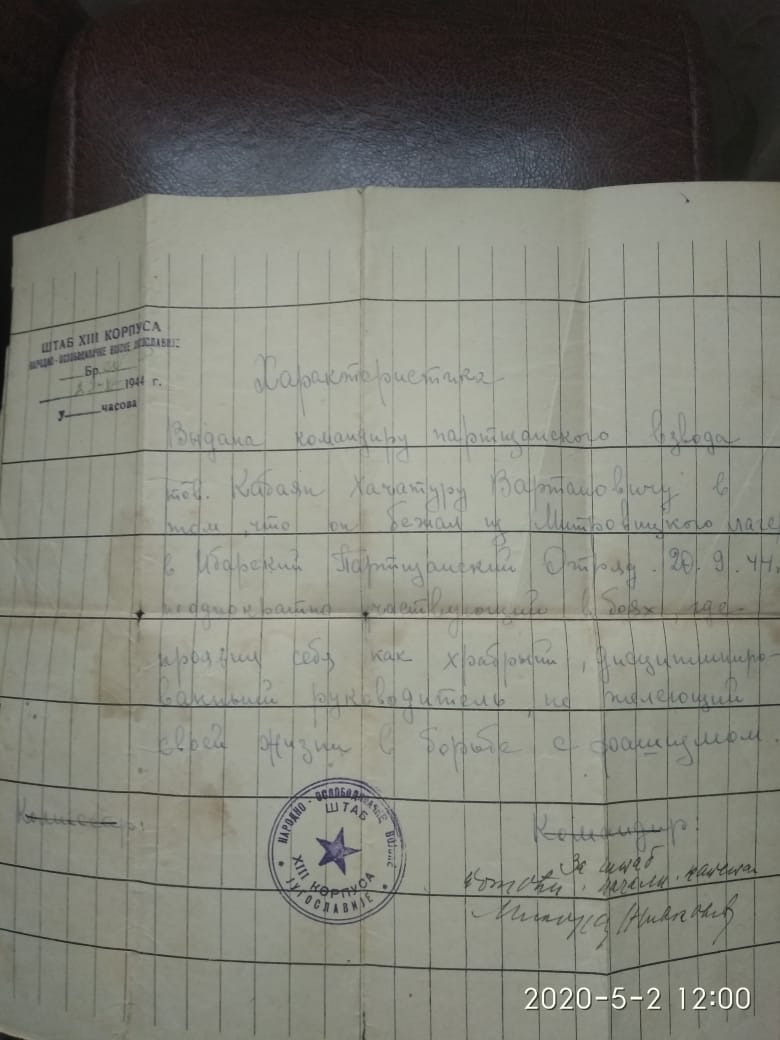 ШТАБ XIII КОРПУСА
НАРОДНО-ОСЛОБОДИЛАЧКЕ ВОЈСКЕ ЈУГОСЛАВИЈЕ
Бр.
1944 г.
У часова
Характеристика
Выдана командиру партизанского взвода
тов. Кабаян Хачатуру Вартановичу в
том, что он бежал из Митровицкого лаге
в Ибарский Партизанский Отряд. 20. 9. 44
участвующий в боях, где
проявил себя как храбрый, дисциплиниро-
ванный руководитель, не
своей жизни в борьбе с фашизмом.
Комиссар:
Командир:
За штаб
НАРОДНО-ОСЛОБОДИЛАЧКЕ ВОЈСКЕ
ШТАБ
XIII КОРПУСА
ЈУГОСЛАВИЈЕ
2020-5-2 12:00